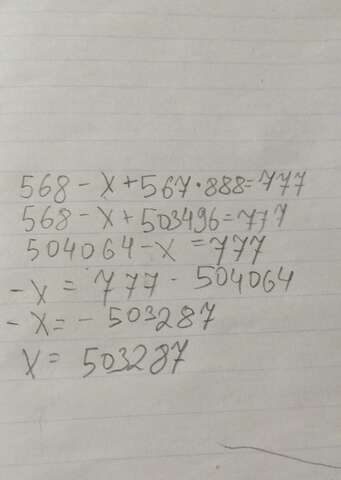 568 - x + 567 · 888 = 777
568 - x + 503496 = 777
504064 - x = 777
- x = 777 - 504064
- x = - 503287
x = 503287